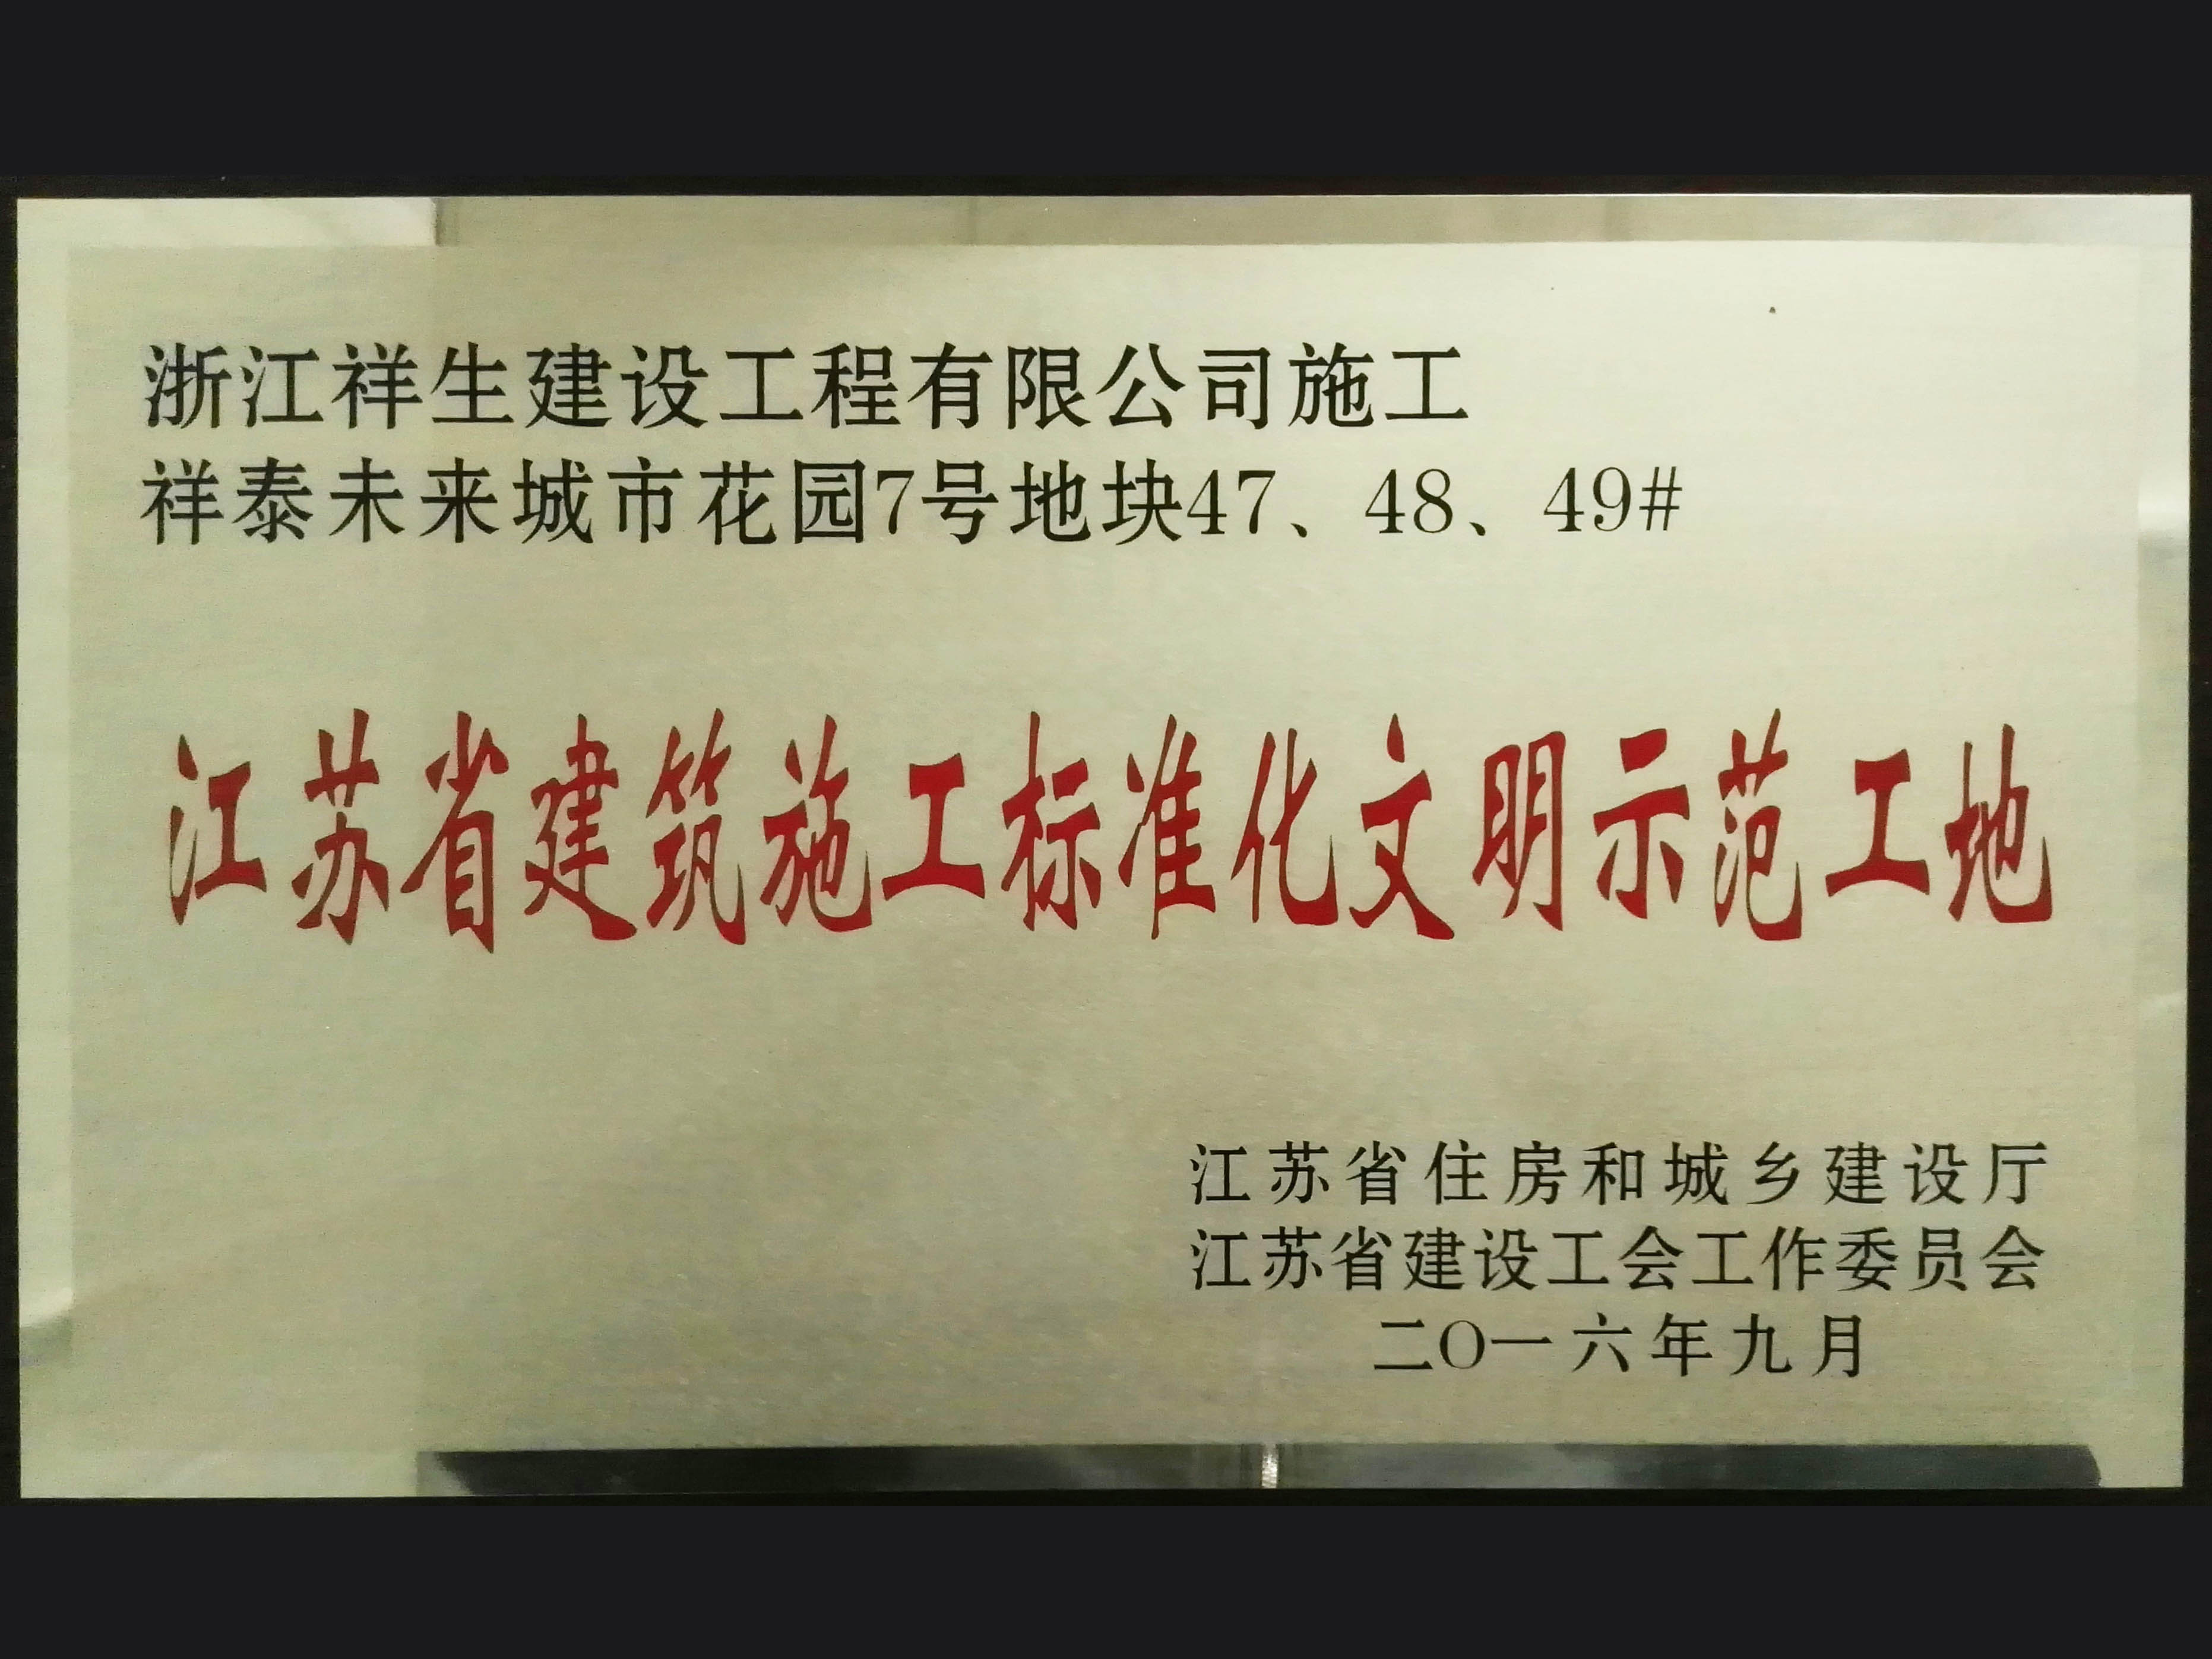 浙江祥生建设工程有限公司施工
祥泰未来城市花园7号地块47、48、49#
江苏省建筑施工标准化文明示范工地
江苏省住房和城乡建设厅
江苏省建设工会工作委员会
二〇一六年九月